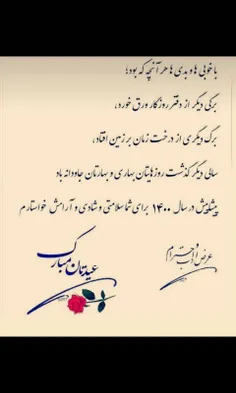 با خوبی ها و بدی ها هر آنچه که بود؛
برگی دیگر از دفتر روزگار ورق خورد،
برگ دیگری از درخت زمان بر زمین افتاد،
سالی دیگر گذشت روزهایتان بهاری و بهارتان جاودانه باد
پیشاپیش در سال ۱۴۰۰ برای شما سلامتی و شادی و آرامش خواستارم
عرض ادب و احترام
عیدتان مبارک